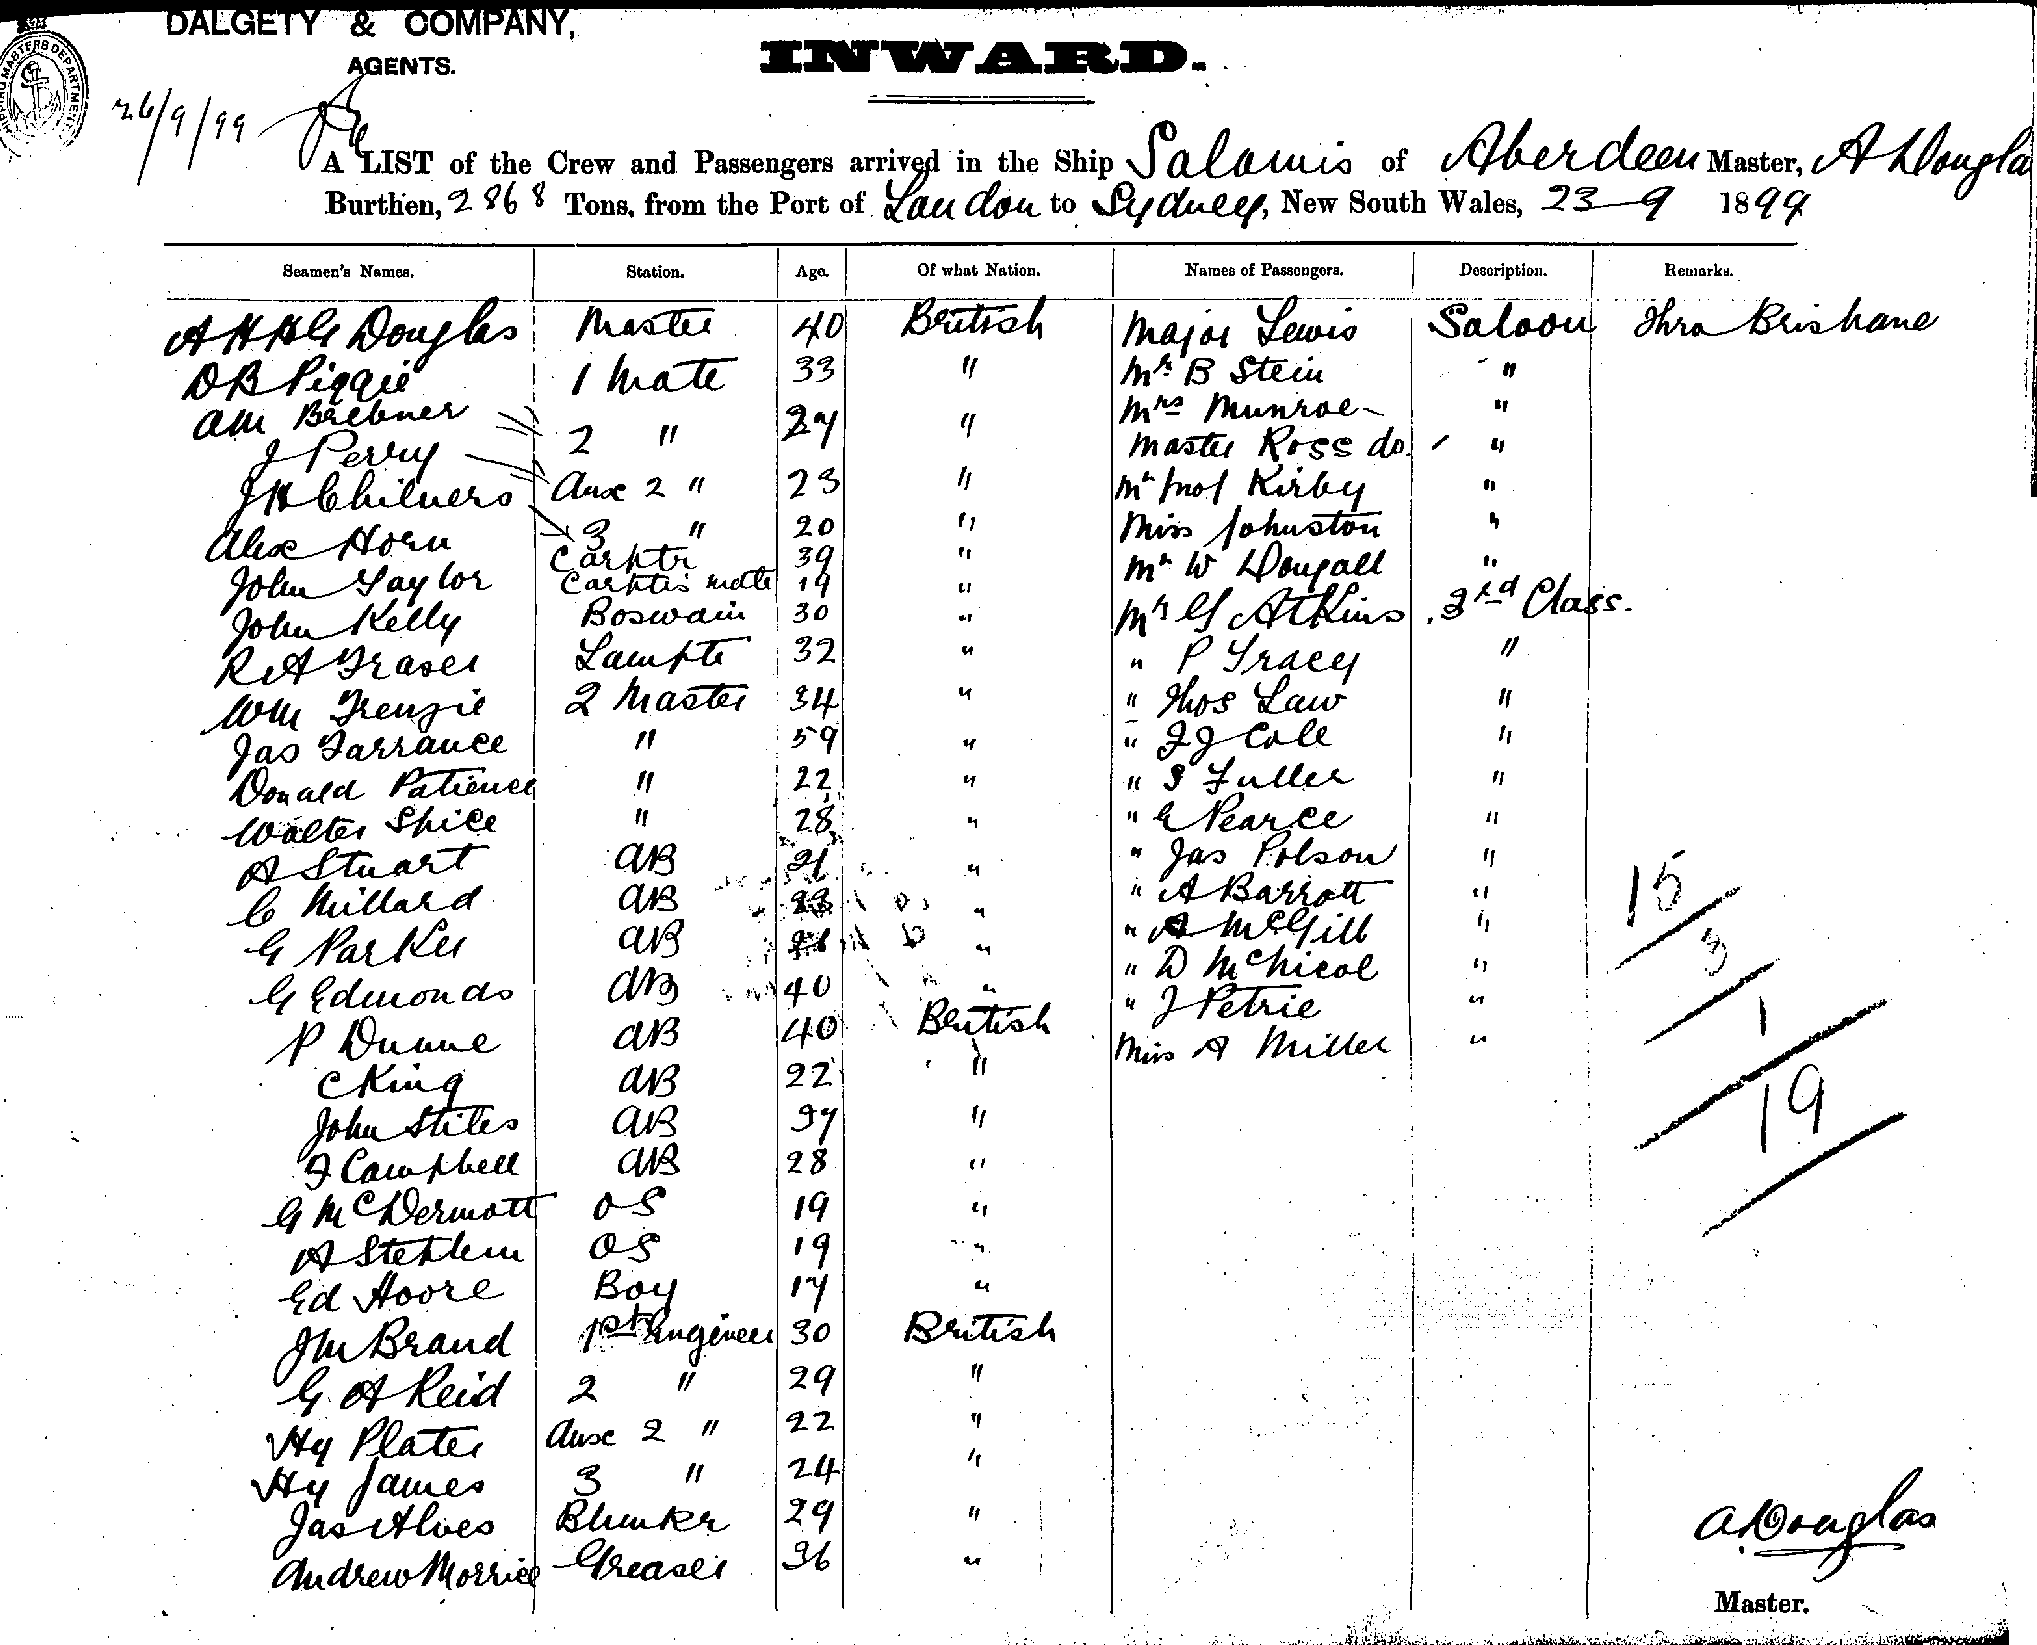 DALGETY & COMPANY,
AGENTS.
INWARD.
26/9/99
A LIST of the Crew and Passengers arrived in the Ship Salamis of Aberdeen Master, A Douglas
Burthen, 2868 Tons, from the Port of London to Sydney, New South Wales, 23-9 1899
Seamen's Names. Station. Age. Of what Nation. Names of Passengers. Description. Remarks.
A H H G Douglas Master 40 British Major Lewis Saloon Thro Brisbane
D B Piggie 1 Mate 33 " Mr B Stein "
AM Brebner 2 " 27 " Mrs Munroe "
J Perry Master Ross do. "
J H Chilvers Aux 2 " 23 " Mr Jno Kirby "
Alex Horn 3 " 20 " Miss Johnston "
Carptr 39 " Mr W Dougall "
John Taylor Carptrs mate 19 "
John Kelly Boswain 30 " Mr G Atkins 3rd Class.
R A Fraser Lampte 32 " " P Tracey "
Wm Frenzie 2 Master 34 " " Thos Law "
Jas Tarrance " 59 " " J J Cole "
Donald Patience " 22 " " S Fuller "
Walter Spice " 28 " " E Pearce "
A Stuart AB 21 " " Jas Polson "
C Millard AB 23 " " A Barratt "
G Parker AB " " A McGill "
" D McNicol "
G Edmonds AB 40 " " J Petrie "
P Dunne AB 40 British Miss A Miller "
C King AB 22 "
John Stiles AB 37 "
J Campbell AB 28 "
G McDermott OS 19 "
A Stephen OS 19 "
Ed Hoore Boy 17 "
JM Brand 1st Engineer 30 British
G A Reid 2 " 29 "
Hy Plater Aux 2 " 22 "
Hy James 3 " 24 "
Jas Alves Blunkr 29 "
Andrew Morrice Greaser 36 "
15
3
1
19
A. Douglas
Master.